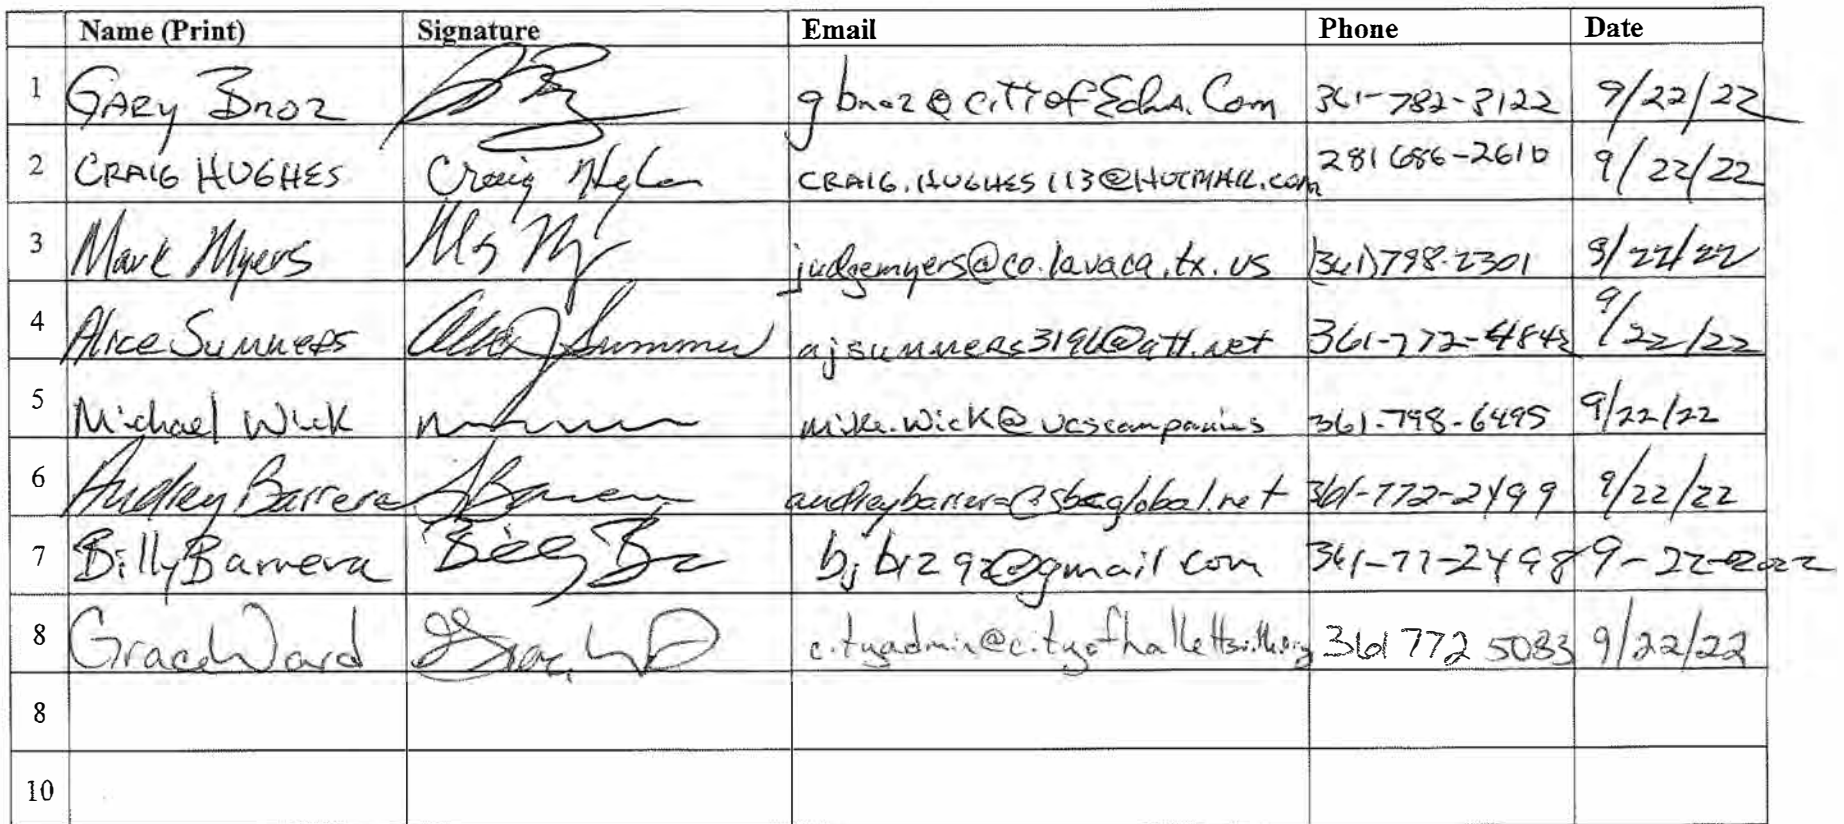 Name (Print) Signature Email Phone Date
1 GARY Broz 361-782-3122 9/22/22
2 CRAIG HUGHES Craig CRAIG.HUGHES113@HOTMAIL.com 281 686-2610 9/22/22
3 Mark Myers judgemyers@co.lavaca.tx.us (361)798-2301 9/22/22
4 Alice Summers Summer ajsummers3196@att.net 361-772-4842 9/22/22
5 Michael Wick mike.wick@vcscompanies 361-798-6495 9/22/22
6 Audrey Barrera audreybarrera@sbcglobal.net 361-772-2499 9/22/22
7 Billy Barrera Billy bjbrz92@gmail com 361-77-2498 9-22-2022
8 Grace Ward cityadmin@cityofhallettsville.org 361 772 5083 9/22/22
8
10